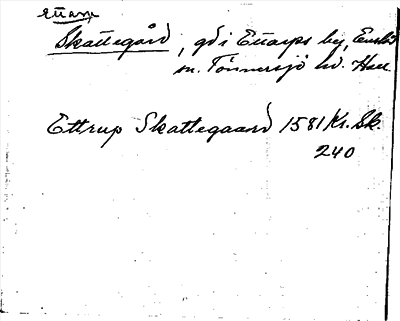 Ettarp
Skattegård, gd i Ettarps by, Enslöv
sn. Tönnersjö hd. Hall
Ettrup Skattegaard 1581 Kr. Sk.
240